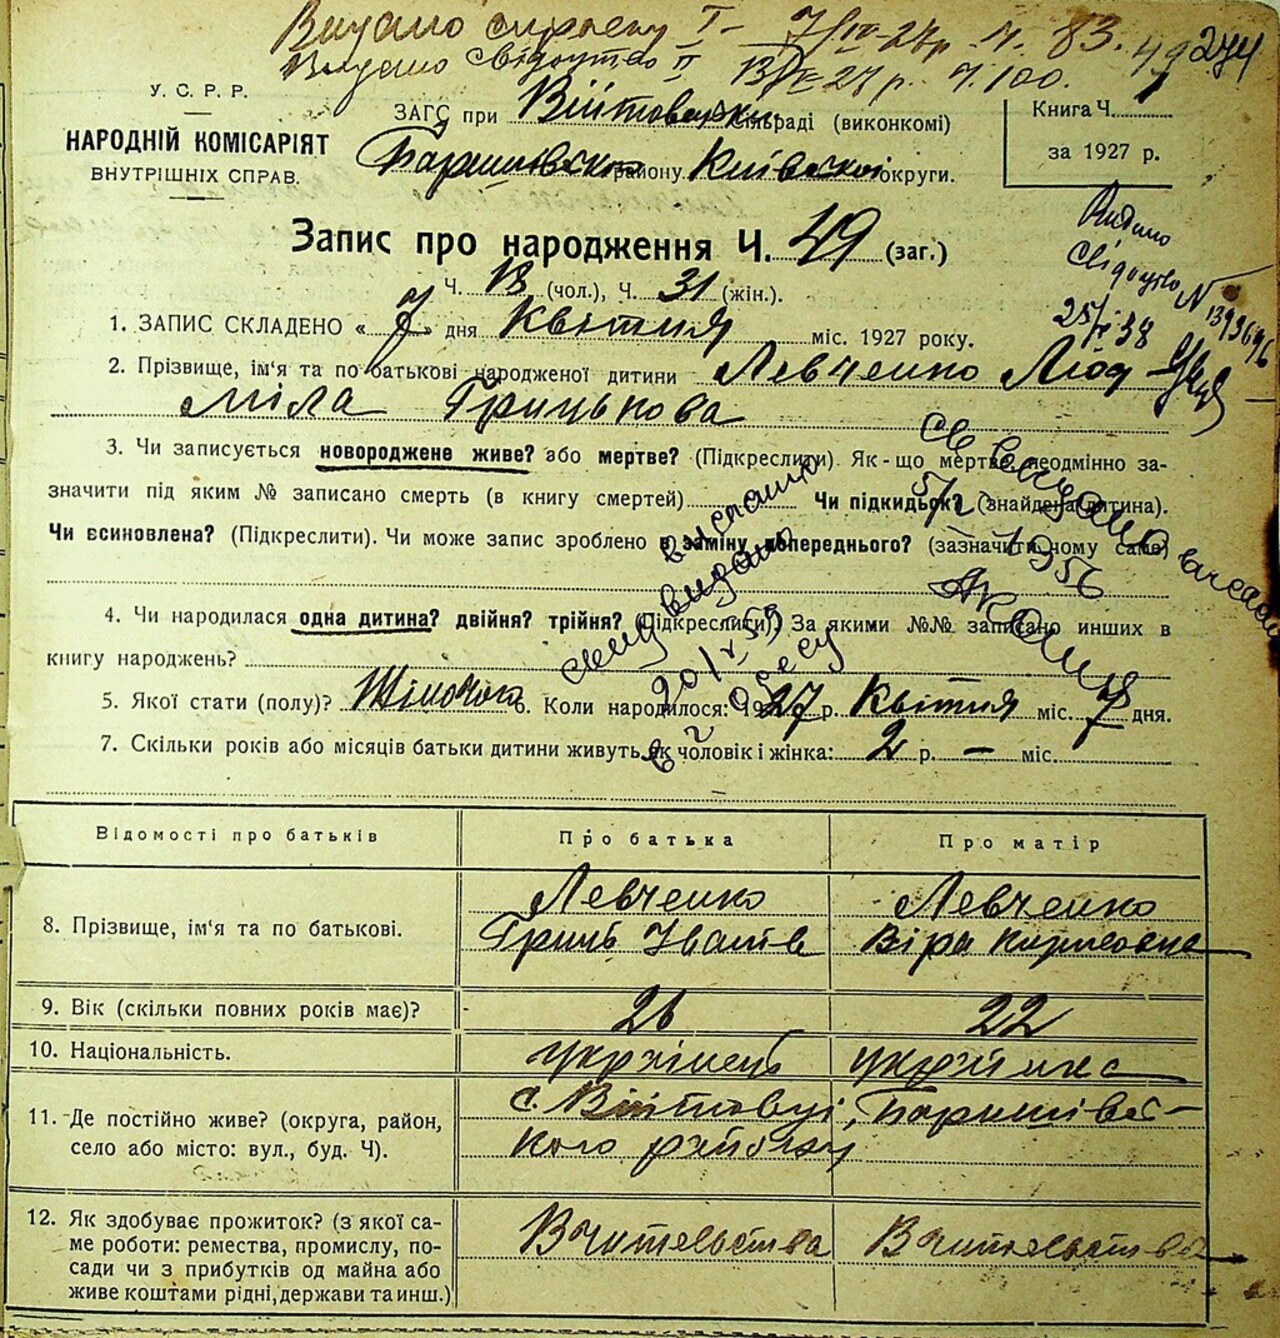 Видано справку I - 7/IX-27р. Ч. 83. 274
Видано свідоцтво II 27 р. Ч. 100.
У. С. Р. Р.
НАРОДНІЙ КОМІСАРІЯТ
ВНУТРІШНІХ СПРАВ.
ЗАГС при Війтовецькій сільраді (виконкомі)
Баришівського району Київської округи.
Книга Ч.
за 1927 р.
Запис про народження Ч. 49 (заг.)
Ч. 18 (чол.), Ч. 31 (жін.).
Видано
свідоцтво
25/ 38
1. ЗАПИС СКЛАДЕНО « 7 » дня Квітня міс. 1927 року.
2. Прізвище, ім'я та по батькові народженої дитини Левченко Люд-
міла Грицькова
3. Чи записується новороджене живе? або мертве? (Підкреслити). Як-що мертве, неодмінно за-
значити під яким № записано смерть (в книгу смертей) Чи підкидьок? (знайдена дитина).
Чи всиновлена? (Підкреслити). Чи може запис зроблено в заміну попереднього? (зазначити чому саме)
4. Чи народилася одна дитина? двійня? трійня? (Підкреслити) За якими №№ записано инших в
книгу народжень?
5. Якої стати (полу)? Жіночої 6. Коли народилося: 1927 р. Квітня міс. 7 дня.
7. Скільки років або місяців батьки дитини живуть як чоловік і жінка: 2 р. — міс.
Відомості про батьків Про батька Про матір
8. Прізвище, ім'я та по батькові. Левченко Гриць Іванів Левченко Віра
9. Вік (скільки повних років має)? 26 22
10. Національність. українець українка
11. Де постійно живе? (округа, район,
село або місто: вул., буд. Ч).
с. Війтовці, Баришівсь-
кого району
12. Як здобуває прожиток? (з якої са-
ме роботи: ремества, промислу, по-
сади чи з прибутків од майна або
живе коштами рідні, держави та инш.)
Вчительства Вчительства